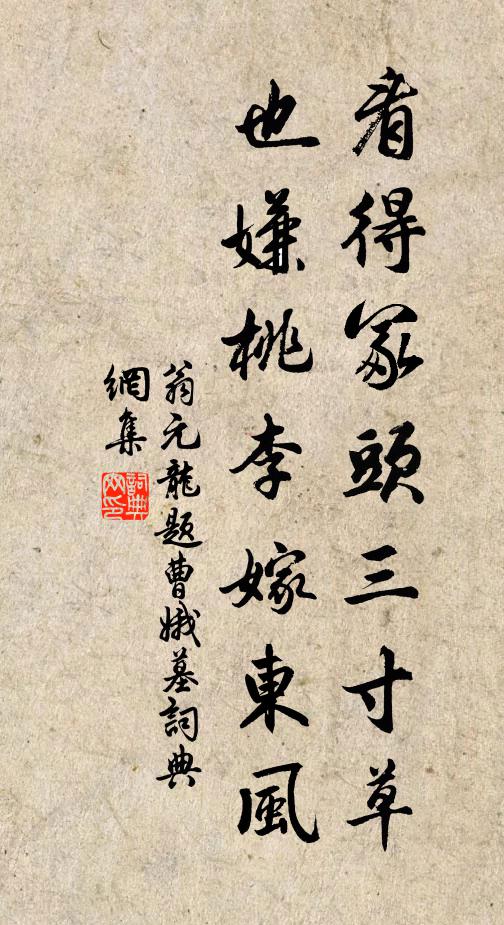 看得冢頭三寸草
也嫌桃李嫁東風
翁元龍題曹娥墓詞典
網集
詞典
网印